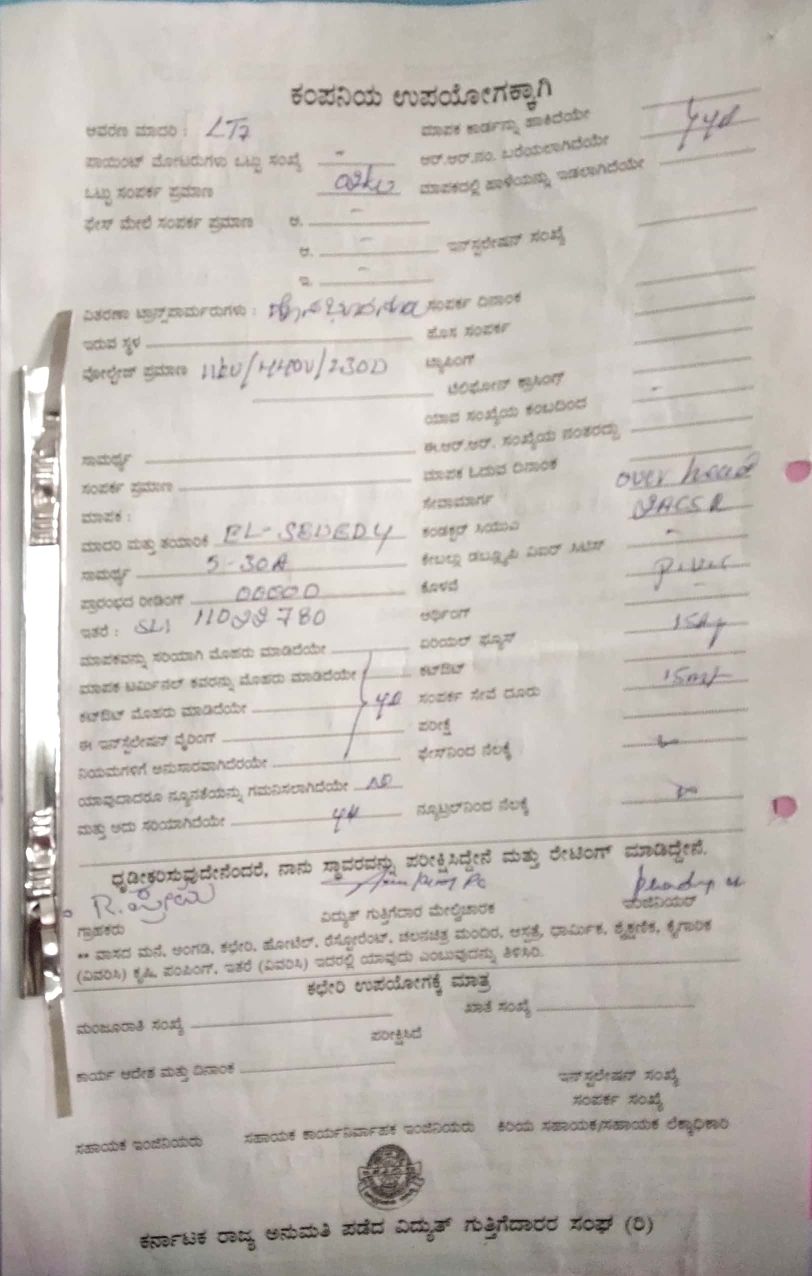 ಕಂಪನಿಯ ಉಪಯೋಗಕ್ಕಾಗಿ
ಆವರಣ ಮಾದರಿ : LT7 ಮಾಪಕ ಕಾರ್ಡನ್ನು ಹಾಕಿದೆಯೇ
ಪಾಯಿಂಟ್ ಮೋಟರುಗಳು ಒಟ್ಟು ಸಂಖ್ಯೆ - ಆರ್.ಆರ್.ನಂ. ಬರೆಯಲಾಗಿದೆಯೇ
ಒಟ್ಟು ಸಂಪರ್ಕ ಪ್ರಮಾಣ ಮಾಪಕದಲ್ಲಿ ಹಾಳೆಯನ್ನು ಇಡಲಾಗಿದೆಯೇ
ಫೇಸ್ ಮೇಲೆ ಸಂಪರ್ಕ ಪ್ರಮಾಣ ಅ. -
ಆ. - ಇನ್‌ಸ್ಟಲೇಷನ್ ಸಂಖ್ಯೆ
ಇ. -
ವಿತರಣಾ ಟ್ರಾನ್ಸ್‌ಫಾರ್ಮರುಗಳು : ಸಂಪರ್ಕ ದಿನಾಂಕ
ಇರುವ ಸ್ಥಳ ಹೊಸ ಸಂಪರ್ಕ
ವೋಲ್ಟೇಜ್ ಪ್ರಮಾಣ 11KV/440V/230V ಟ್ಯಾಪಿಂಗ್
ಟೆಲಿಫೋನ್ ಕ್ರಾಸಿಂಗ್
ಯಾವ ಸಂಖ್ಯೆಯ ಕಂಬದಿಂದ -
ಸಾಮರ್ಥ್ಯ ಈ.ಆರ್.ಆರ್. ಸಂಖ್ಯೆಯ ನಂತರದ್ದು
ಸಂಪರ್ಕ ಪ್ರಮಾಣ ಮಾಪಕ ಓದುವ ದಿನಾಂಕ
ಮಾಪಕ : ಸೇವಾಮಾರ್ಗ over head
ಮಾದರಿ ಮತ್ತು ತಯಾರಿಕೆ ಕಂಡಕ್ಟರ್ ಸಿಯುಎ
ಸಾಮರ್ಥ್ಯ 5-30A ಕೇಬಲ್ಲು -
ಪ್ರಾರಂಭದ ರೀಡಿಂಗ್ 00000 ಕೊಳವೆ
ಇತರೆ : SL: 11022780 ಅರ್ಥಿಂಗ್
ಮಾಪಕವನ್ನು ಸರಿಯಾಗಿ ಮೊಹರು ಮಾಡಿದೆಯೇ ಏರಿಯಲ್ ಫ್ಯೂಸ್
ಮಾಪಕ ಟರ್ಮಿನಲ್ ಕವರನ್ನು ಮೊಹರು ಮಾಡಿದೆಯೇ ಕಟ್‌ಔಟ್
ಕಟ್‌ಔಟ್ ಮೊಹರು ಮಾಡಿದೆಯೇ ಸಂಪರ್ಕ ಸೇವೆ ದೂರು
ಈ ಇನ್‌ಸ್ಟಲೇಷನ್ ವೈರಿಂಗ್ ಪರೀಕ್ಷೆ
ನಿಯಮಗಳಿಗೆ ಅನುಸಾರವಾಗಿದೆಯೇ ಫೇಸ್‌ನಿಂದ ನೆಲಕ್ಕೆ
ಯಾವುದಾದರೂ ನ್ಯೂನತೆಯನ್ನು ಗಮನಿಸಲಾಗಿದೆಯೇ
ಮತ್ತು ಅದು ಸರಿಯಾಗಿದೆಯೇ ನ್ಯೂಟ್ರಲ್‌ನಿಂದ ನೆಲಕ್ಕೆ
ದೃಢೀಕರಿಸುವುದೇನೆಂದರೆ, ನಾನು ಸ್ಥಾವರವನ್ನು ಪರೀಕ್ಷಿಸಿದ್ದೇನೆ ಮತ್ತು ರೇಟಿಂಗ್ ಮಾಡಿದ್ದೇನೆ.
R. ಪ್ರೇಮ
ಗ್ರಾಹಕರು ವಿದ್ಯುತ್ ಗುತ್ತಿಗೆದಾರ ಮೇಲ್ವಿಚಾರಕ ಇಂಜಿನಿಯರ್
** ವಾಸದ ಮನೆ, ಅಂಗಡಿ, ಕಛೇರಿ, ಹೋಟೆಲ್, ರೆಸ್ಟೋರೆಂಟ್, ಚಲನಚಿತ್ರ ಮಂದಿರ, ಆಸ್ಪತ್ರೆ, ಧಾರ್ಮಿಕ, ಶೈಕ್ಷಣಿಕ, ಕೈಗಾರಿಕ
(ವಿವರಿಸಿ) ಕೃಷಿ, ಪಂಪಿಂಗ್, ಇತರೆ (ವಿವರಿಸಿ) ಇದರಲ್ಲಿ ಯಾವುದು ಎಂಬುವುದನ್ನು ತಿಳಿಸಿರಿ.
ಕಛೇರಿ ಉಪಯೋಗಕ್ಕೆ ಮಾತ್ರ
ಮಂಜೂರಾತಿ ಸಂಖ್ಯೆ ಖಾತೆ ಸಂಖ್ಯೆ
ಪರೀಕ್ಷಿಸಿದೆ
ಕಾರ್ಯ ಆದೇಶ ಮತ್ತು ದಿನಾಂಕ ಇನ್‌ಸ್ಟಲೇಷನ್ ಸಂಖ್ಯೆ
ಸಂಪರ್ಕ ಸಂಖ್ಯೆ
ಸಹಾಯಕ ಇಂಜಿನಿಯರು ಸಹಾಯಕ ಕಾರ್ಯನಿರ್ವಾಹಕ ಇಂಜಿನಿಯರು ಕಿರಿಯ ಸಹಾಯಕ/ಸಹಾಯಕ ಲೆಕ್ಕಾಧಿಕಾರಿ
ಕರ್ನಾಟಕ ರಾಜ್ಯ ಅನುಮತಿ ಪಡೆದ ವಿದ್ಯುತ್ ಗುತ್ತಿಗೆದಾರರ ಸಂಘ (ರಿ)